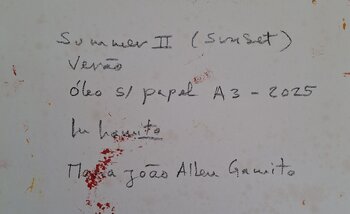 Summer II (Sunset)
Verão
Óleo s/ papel A3 - 2025
Maria João Allen Gamito